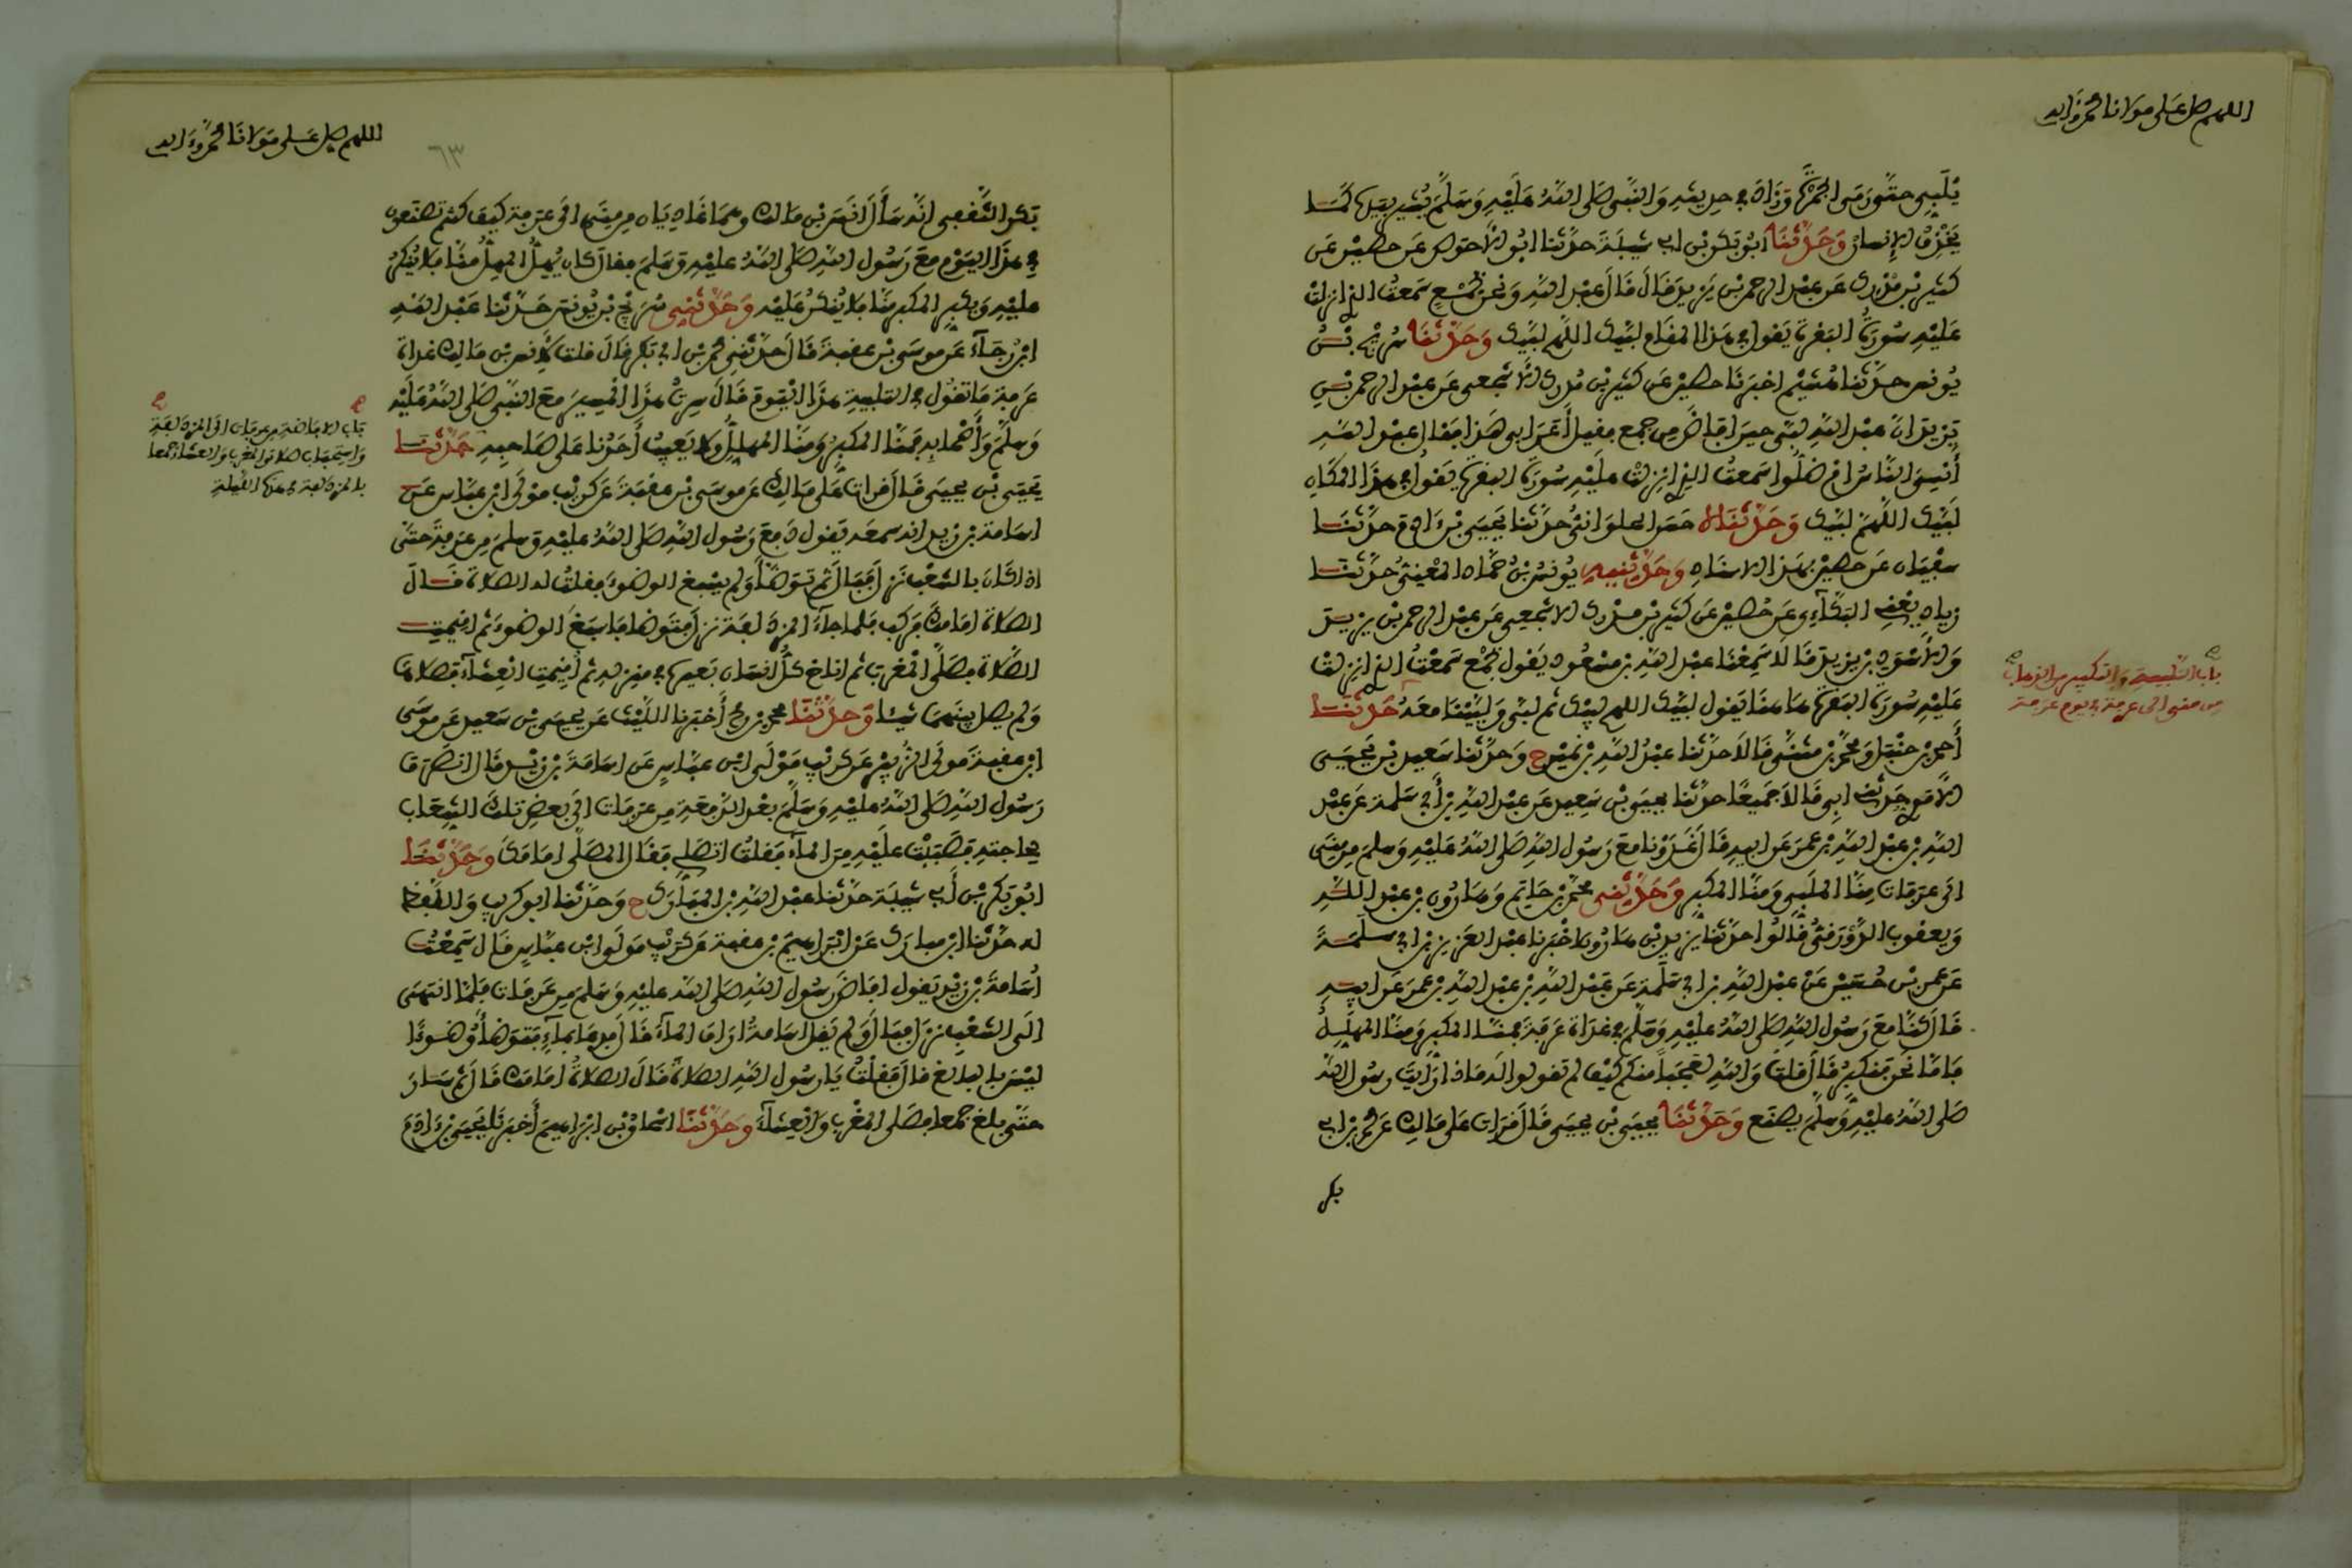 اللهم صل على مولانا محمد وءاله
يُلَبِّي حتى رمى الجمرة وزاد في حديثه والنبي صلى الله عليه وسلم يشير بيده كما
يخذف الإنسان وحدثنا ابو بكر بن ابي شيبة حدثنا ابو الاحوص عن حصين عن
كثير بن مدرك عن عبد الرحمن بن يزيد قال قال عبد الله ونحن بجمع سمعت الذي انزلت
عليه سورة البقرة يقول في هذا المقام لبيك اللهم لبيك وحدثنا سريج بن
يونس حدثنا هشيم اخبرنا حصين عن كثير بن مدرك الاشجعي عن عبد الرحمن بن
يزيد ان عبد الله لبى حين افاض من جمع فقيل أعرابي هذا فقال عبد الله
أنسي الناس ام ضلوا سمعت الذي انزلت عليه سورة البقرة يقول في هذا المكان
لبيك اللهم لبيك وحدثناه حسن الحلواني حدثنا يحيى بن ءادم حدثنا
سفيان عن حصين بهذا الاسناد وحدثنيه يونس بن حماد المعني حدثنا
زياد يعني البكاءي عن حصين عن كثير بن مدرك الاشجعي عن عبد الرحمن بن يزيد
والاسود بن يزيد قالا سمعنا عبد الله بن مسعود يقول بجمع سمعت الذي انزلت
عليه سورة البقرة هاهنا يقول لبيك اللهم لبيك ثم لبى ولبينا معه حدثنا
باب التلبية والتكبير في الذهاب
من منى الى عرفة في يوم عرفة
أحمد بن حنبل ومحمد بن مثنى قالا حدثنا عبد الله بن نمير ح وحدثنا سعيد بن يحيى
الأموي حدثني ابي قالا جميعا حدثنا يحيى بن سعيد عن عبد الله بن أبي سلمة عن عبد
الله بن عبد الله بن عمر عن ابيه قال غدونا مع رسول الله صلى الله عليه وسلم من منى
الى عرفات منا الملبي ومنا المكبر وحدثني محمد بن حاتم وهارون بن عبد الله
ويعقوب الدورقي قالوا حدثنا يزيد بن هارون اخبرنا عبد العزيز بن ابي سلمة
عن عمر بن حسين عن عبد الله بن ابي سلمة عن عبد الله بن عبد الله بن عمر عن ابيه
قال كنا مع رسول الله صلى الله عليه وسلم في غداة عرفة فمنا المكبر ومنا المهلل
فاما نحن فنكبر قال قلت والله لعجبا منكم كيف لم تقولوا له ماذا رايت رسول الله
صلى الله عليه وسلم يصنع وحدثنا يحيى بن يحيى قال قرات على مالك عن محمد بن ابي
بكر
اللهم صل على مولانا محمد وءاله
٦٣
بكر الثقفي انه سأل انس بن مالك وهما غاديان من منى الى عرفة كيف كنتم تصنعون
في هذا اليوم مع رسول الله صلى الله عليه وسلم فقال كان يهل المهل منا فلا ينكر
عليه ويكبر المكبر منا فلا ينكر عليه وحدثني سريج بن يونس حدثنا عبد الله
ابن رجاء عن موسى بن عقبة قال حدثني محمد بن ابي بكر قال قلت لانس بن مالك غداة
عرفة ما تقول في التلبية هذا اليوم قال سرت هذا المسير مع النبي صلى الله عليه
وسلم وأصحابه فمنا المكبر ومنا المهلل ولا يعيب أحدنا على صاحبه حدثنا
باب الافاضة من عرفات الى المزدلفة
واستحباب صلاتي المغرب والعشاء جمعا
بالمزدلفة في هذه الليلة
يحيى بن يحيى قال قرات على مالك عن موسى بن عقبة عن كريب مولى ابن عباس عن
اسامة بن زيد انه سمعه يقول دفع رسول الله صلى الله عليه وسلم من عرفة حتى
اذا كان بالشعب نزل فبال ثم توضأ ولم يسبغ الوضوء فقلت له الصلاة قال
الصلاة امامك فركب فلما جاء المزدلفة نزل فتوضا فاسبغ الوضوء ثم اقيمت
الصلاة فصلى المغرب ثم اناخ كل انسان بعيره في منزله ثم أقيمت العشاء فصلاها
ولم يصل بينهما شيئا وحدثنا محمد بن رمح أخبرنا الليث عن يحيى بن سعيد عن موسى
ابن عقبة مولى الزبير عن كريب مولى ابن عباس عن اسامة بن زيد قال انصرف
رسول الله صلى الله عليه وسلم بعد الدفعة من عرفات الى بعض تلك الشعاب
لحاجته فصببت عليه من الماء فقلت اتصلي فقال المصلى امامك وحدثنا
ابو بكر بن أبي شيبة حدثنا عبد الله بن المبارك ح وحدثنا ابو كريب واللفظ
له حدثنا ابن مبارك عن ابراهيم بن عقبة عن كريب مولى ابن عباس قال سمعت
أسامة بن زيد يقول افاض رسول الله صلى الله عليه وسلم من عرفات فلما انتهى
الى الشعب نزل فبال ولم يقل اسامة اراق الماء قال فدعا بماء فتوضأ وضوءا
ليس بالبالغ قال فقلت يا رسول الله الصلاة قال الصلاة امامك قال ثم سار
حتى بلغ جمعا فصلى المغرب والعشاء وحدثنا اسحاق بن ابراهيم أخبرنا يحيى بن ءادم